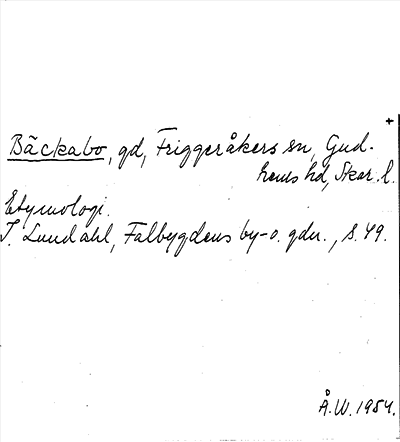 +
Bäckabo, gd, Friggeråkers sn, Gud-
hems hd, Skar. l.
Etymologi.
I. Lundahl, Falbygdens by- o. gdn., s. 49.
Å.W. 1954.